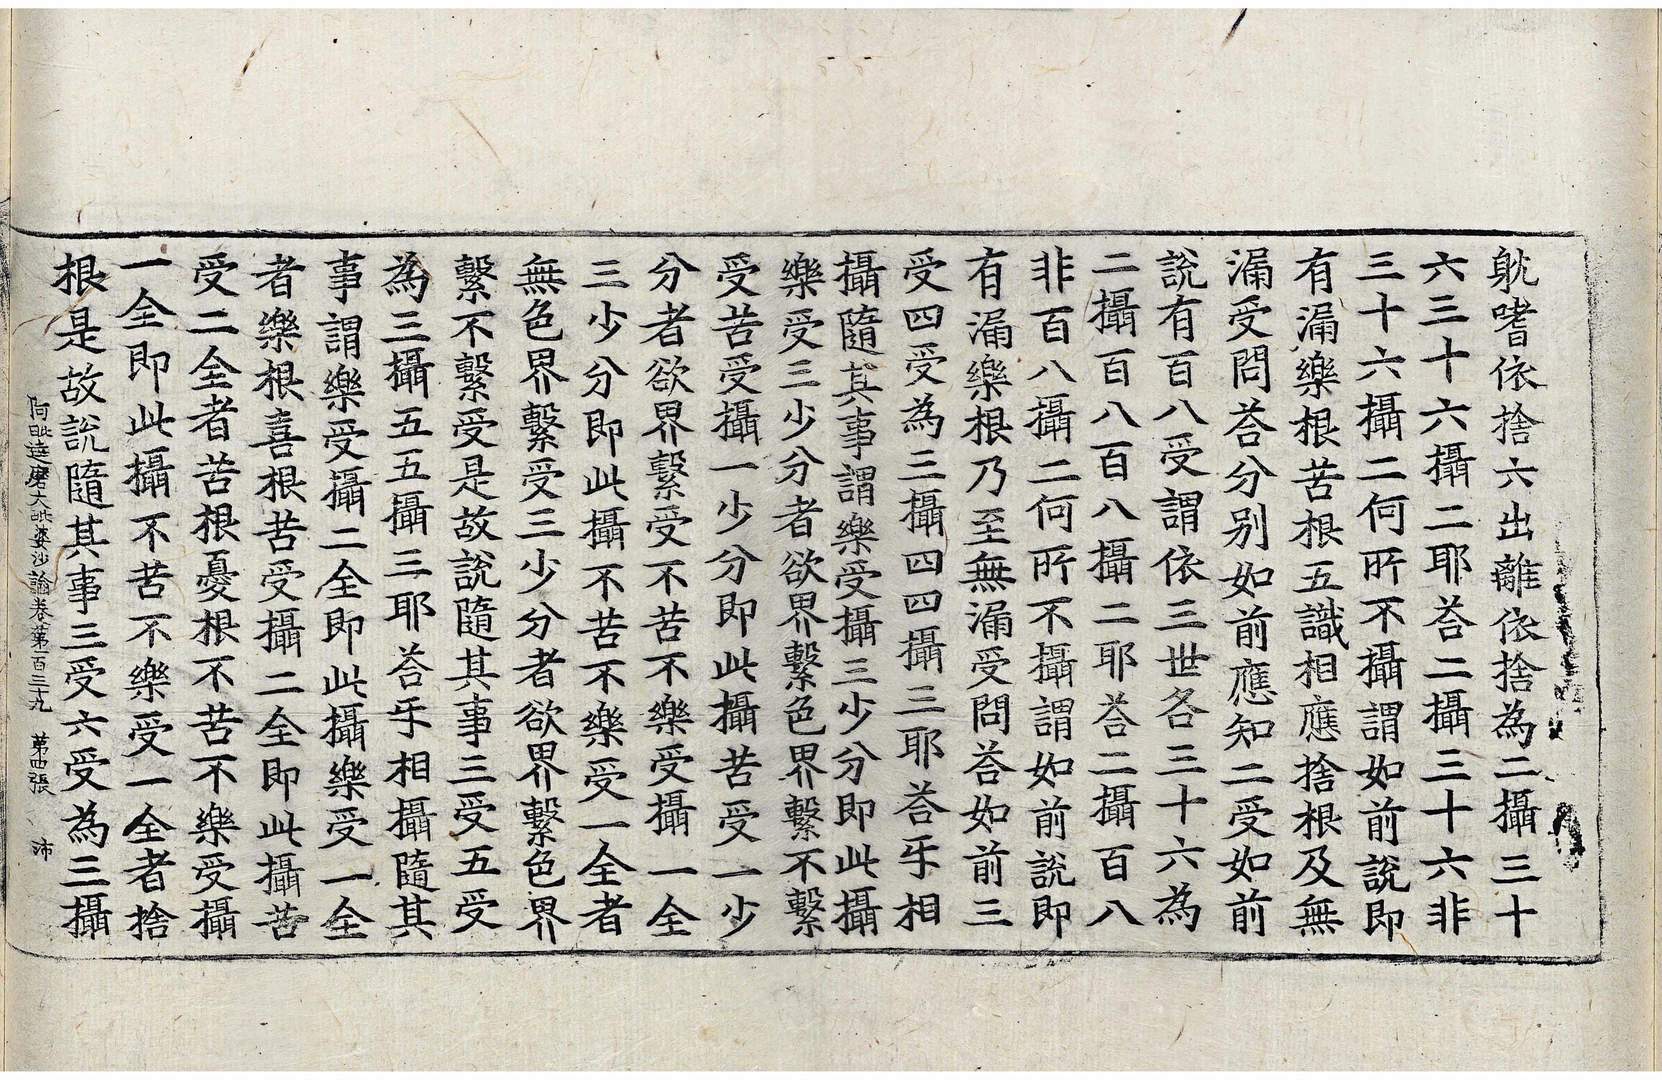 躭嗜依捨六出離依捨為二攝三十
六三十六攝二耶荅二攝三十六非
三十六攝二何所不攝謂如前說即
有漏樂根苦根五識相應捨根及無
漏受問荅分别如前應知二受如前
說有百八受謂依三世各三十六為
二攝百八百八攝二耶荅二攝百八
非百八攝二何所不攝謂如前說即
有漏樂根乃至無漏受問荅如前三
受四受為三攝四四攝三耶荅㸦相
攝隨其事謂樂受攝三少分即此攝
樂受三少分者欲界繫色界繫不繫
受苦受攝一少分即此攝苦受一少
分者欲界繫受不苦不樂受攝一全
三少分即此攝不苦不樂受一全者
無色界繫受三少分者欲界繫色界
繫不繫受是故說隨其事三受五受
為三攝五五攝三耶荅㸦相攝隨其
事謂樂受攝二全即此攝樂受一全
者樂根喜根苦受攝二全即此攝苦
受二全者苦根憂根不苦不樂受攝
一全即此攝不苦不樂受一全者捨
根是故說隨其事三受六受為三攝
阿毗達磨大毗婆沙論卷第百三九 第四張 沛